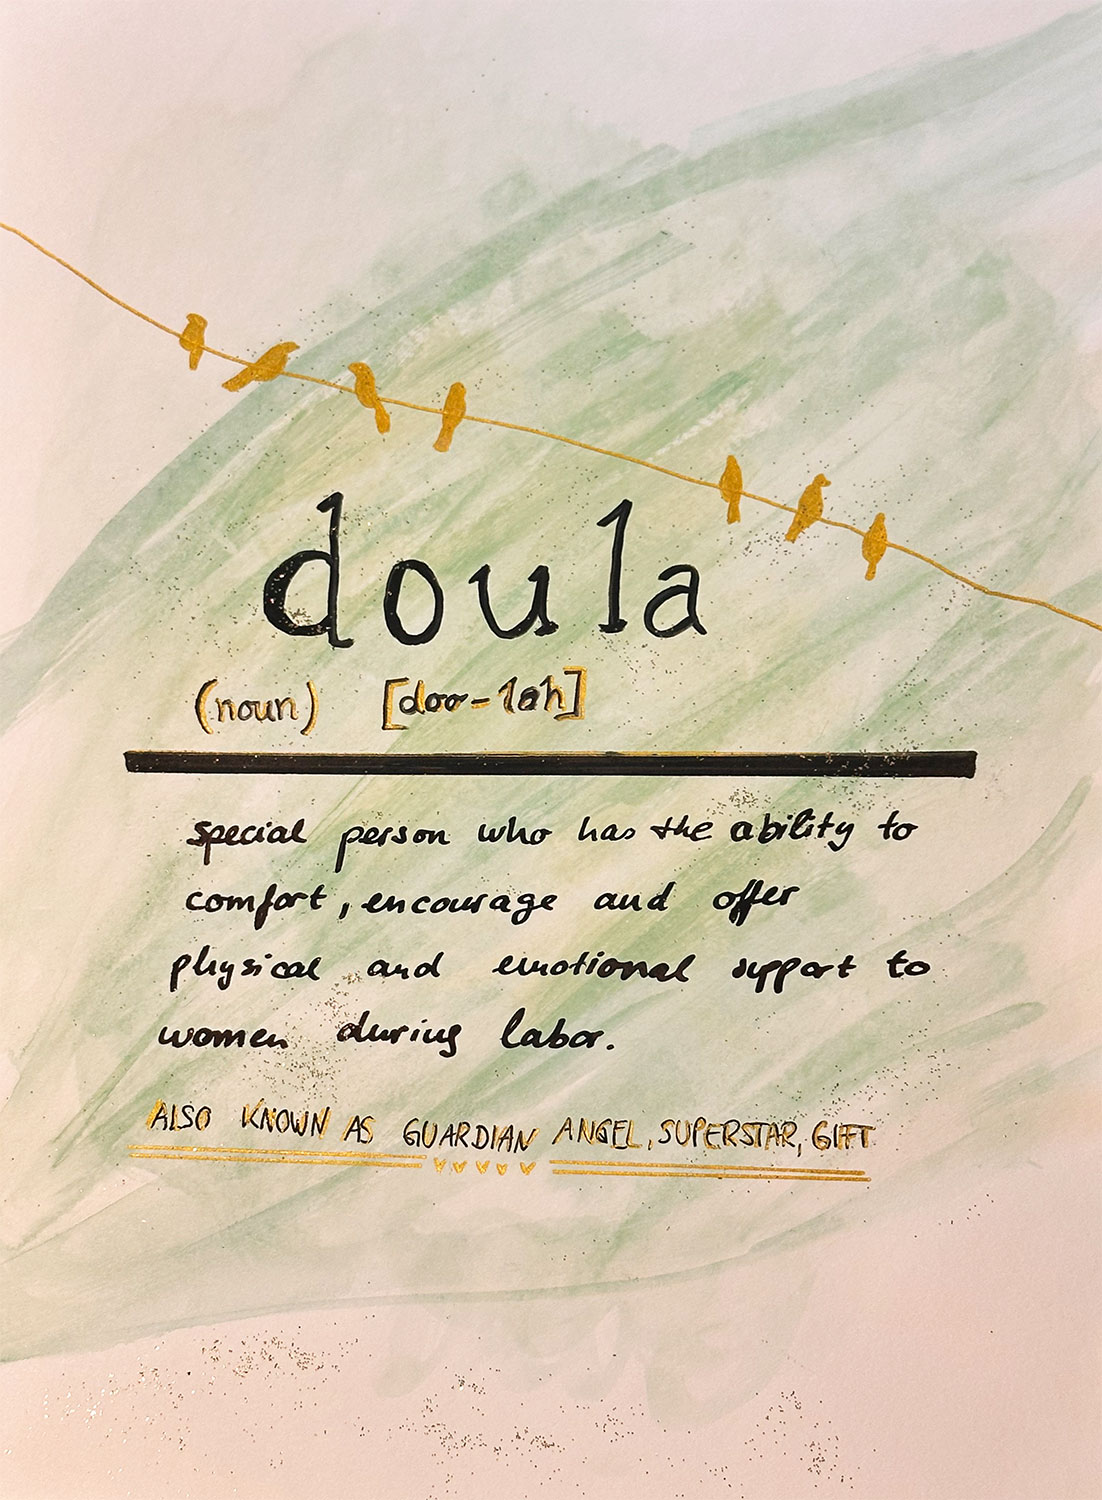 doula
(noun) [doo-lah]
special person who has the ability to
comfort, encourage and offer
physical and emotional support to
women during labor.
ALSO KNOWN AS GUARDIAN ANGEL, SUPERSTAR, GIFT